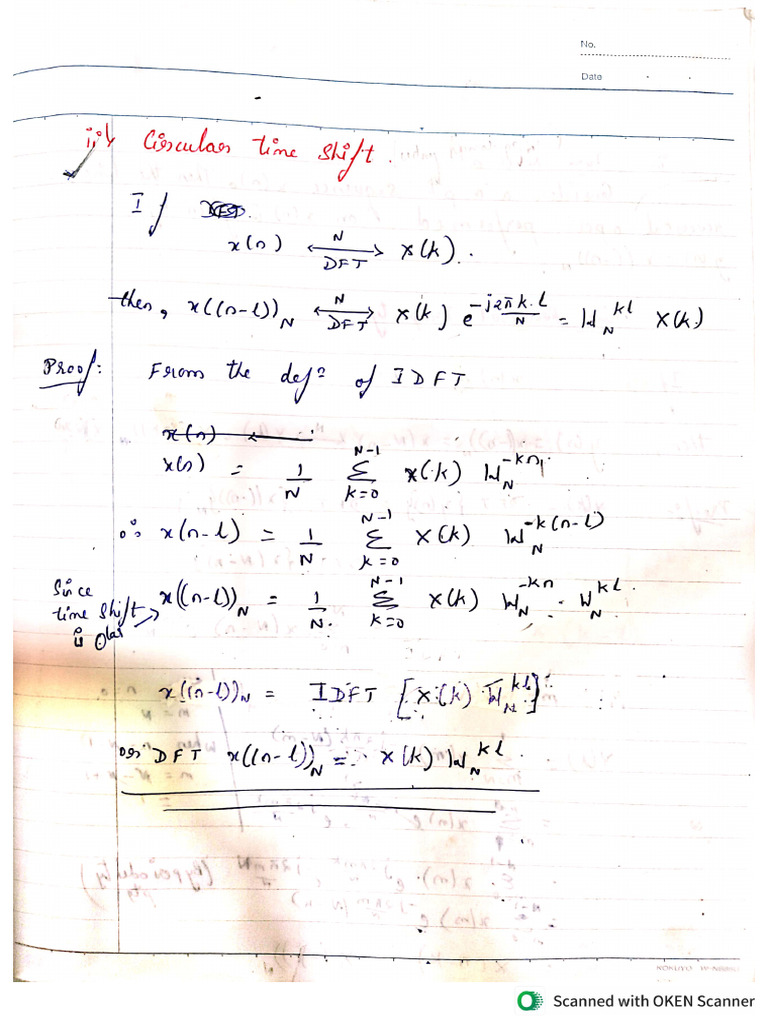 No.
Date
iii) Circular time shift.
If
x(n) <--N/DFT--> X(k).
then, x((n-l))_N <--N/DFT--> X(k) e^{-j2πk.l/N} = W_N^{kl} X(k)
Proof: From the defⁿ of IDFT
x(n)
x(n) = 1/N Σ_{k=0}^{N-1} X(k) W_N^{-kn}
∴ x(n-l) = 1/N Σ_{k=0}^{N-1} X(k) W_N^{-k(n-l)}
Since time shift is Olar → x((n-l))_N = 1/N. Σ_{k=0}^{N-1} X(k) W_N^{-kn} . W_N^{kl}.
x((n-l))_N = IDFT [X(k) W_N^{kl}]
or DFT x((n-l))_N = X(k) W_N^{kl}.
Scanned with OKEN Scanner